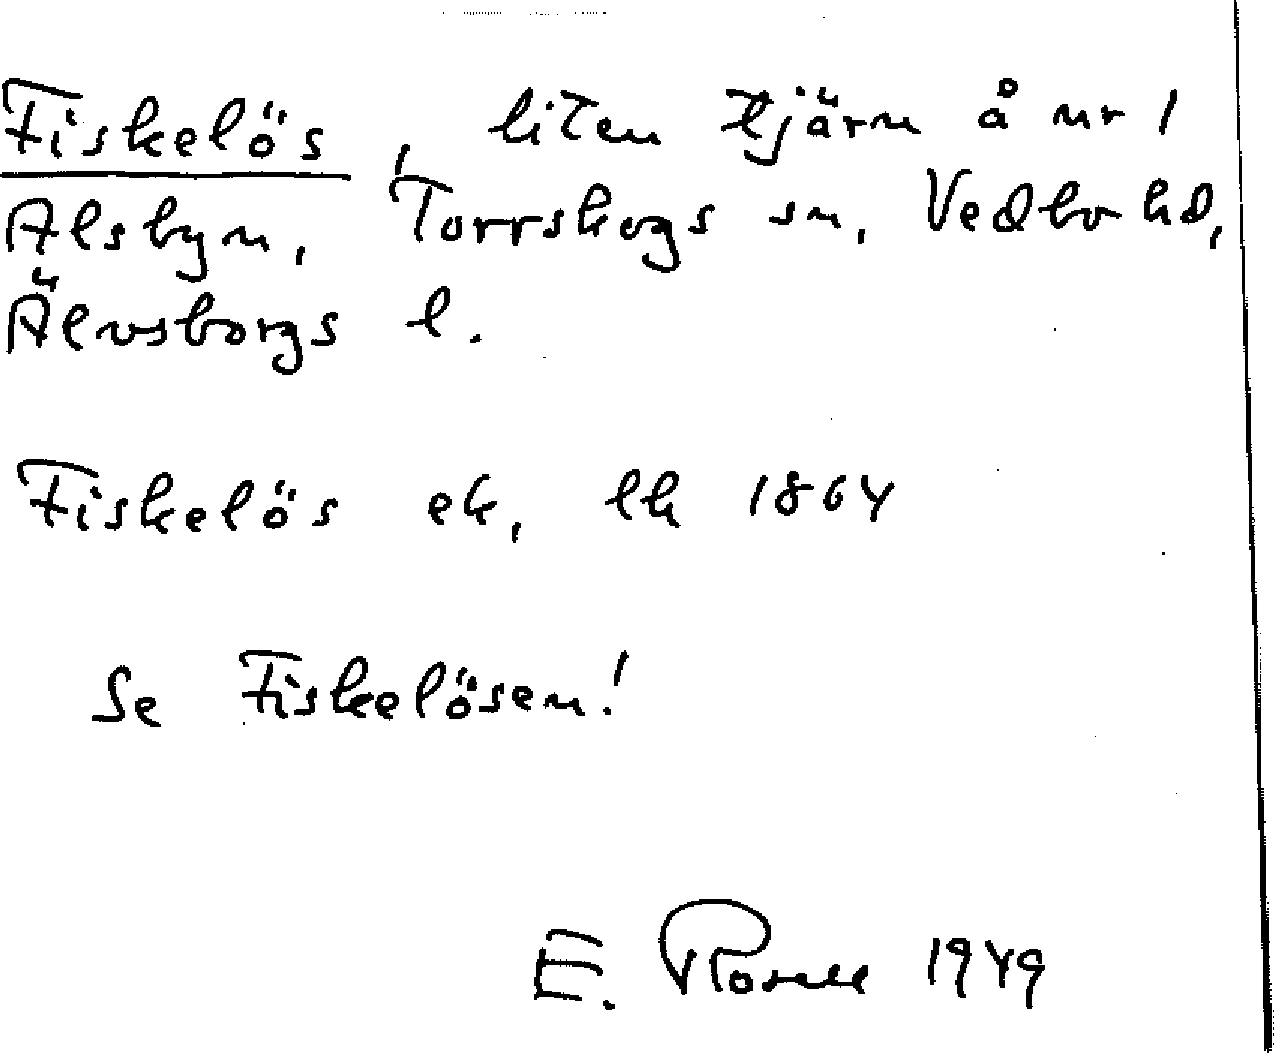 Fiskelös, liten tjärn å nr 1
Alsbyn, Torrskogs sn, Vedbo hd,
Älvsborgs l.
Fiskelös ek, lk 1864
Se Fiskelösen!
E. Rosell 1949